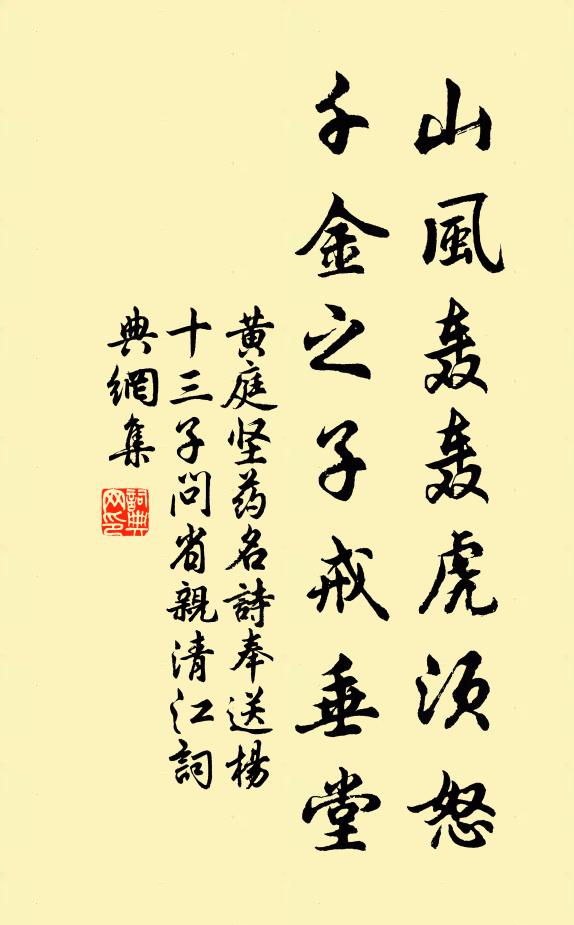 山風轰轰虎须怒
千金之子戒垂堂
黄庭坚药名詩奉送楊
十三子问省親清江詞
典網集
詞典網印